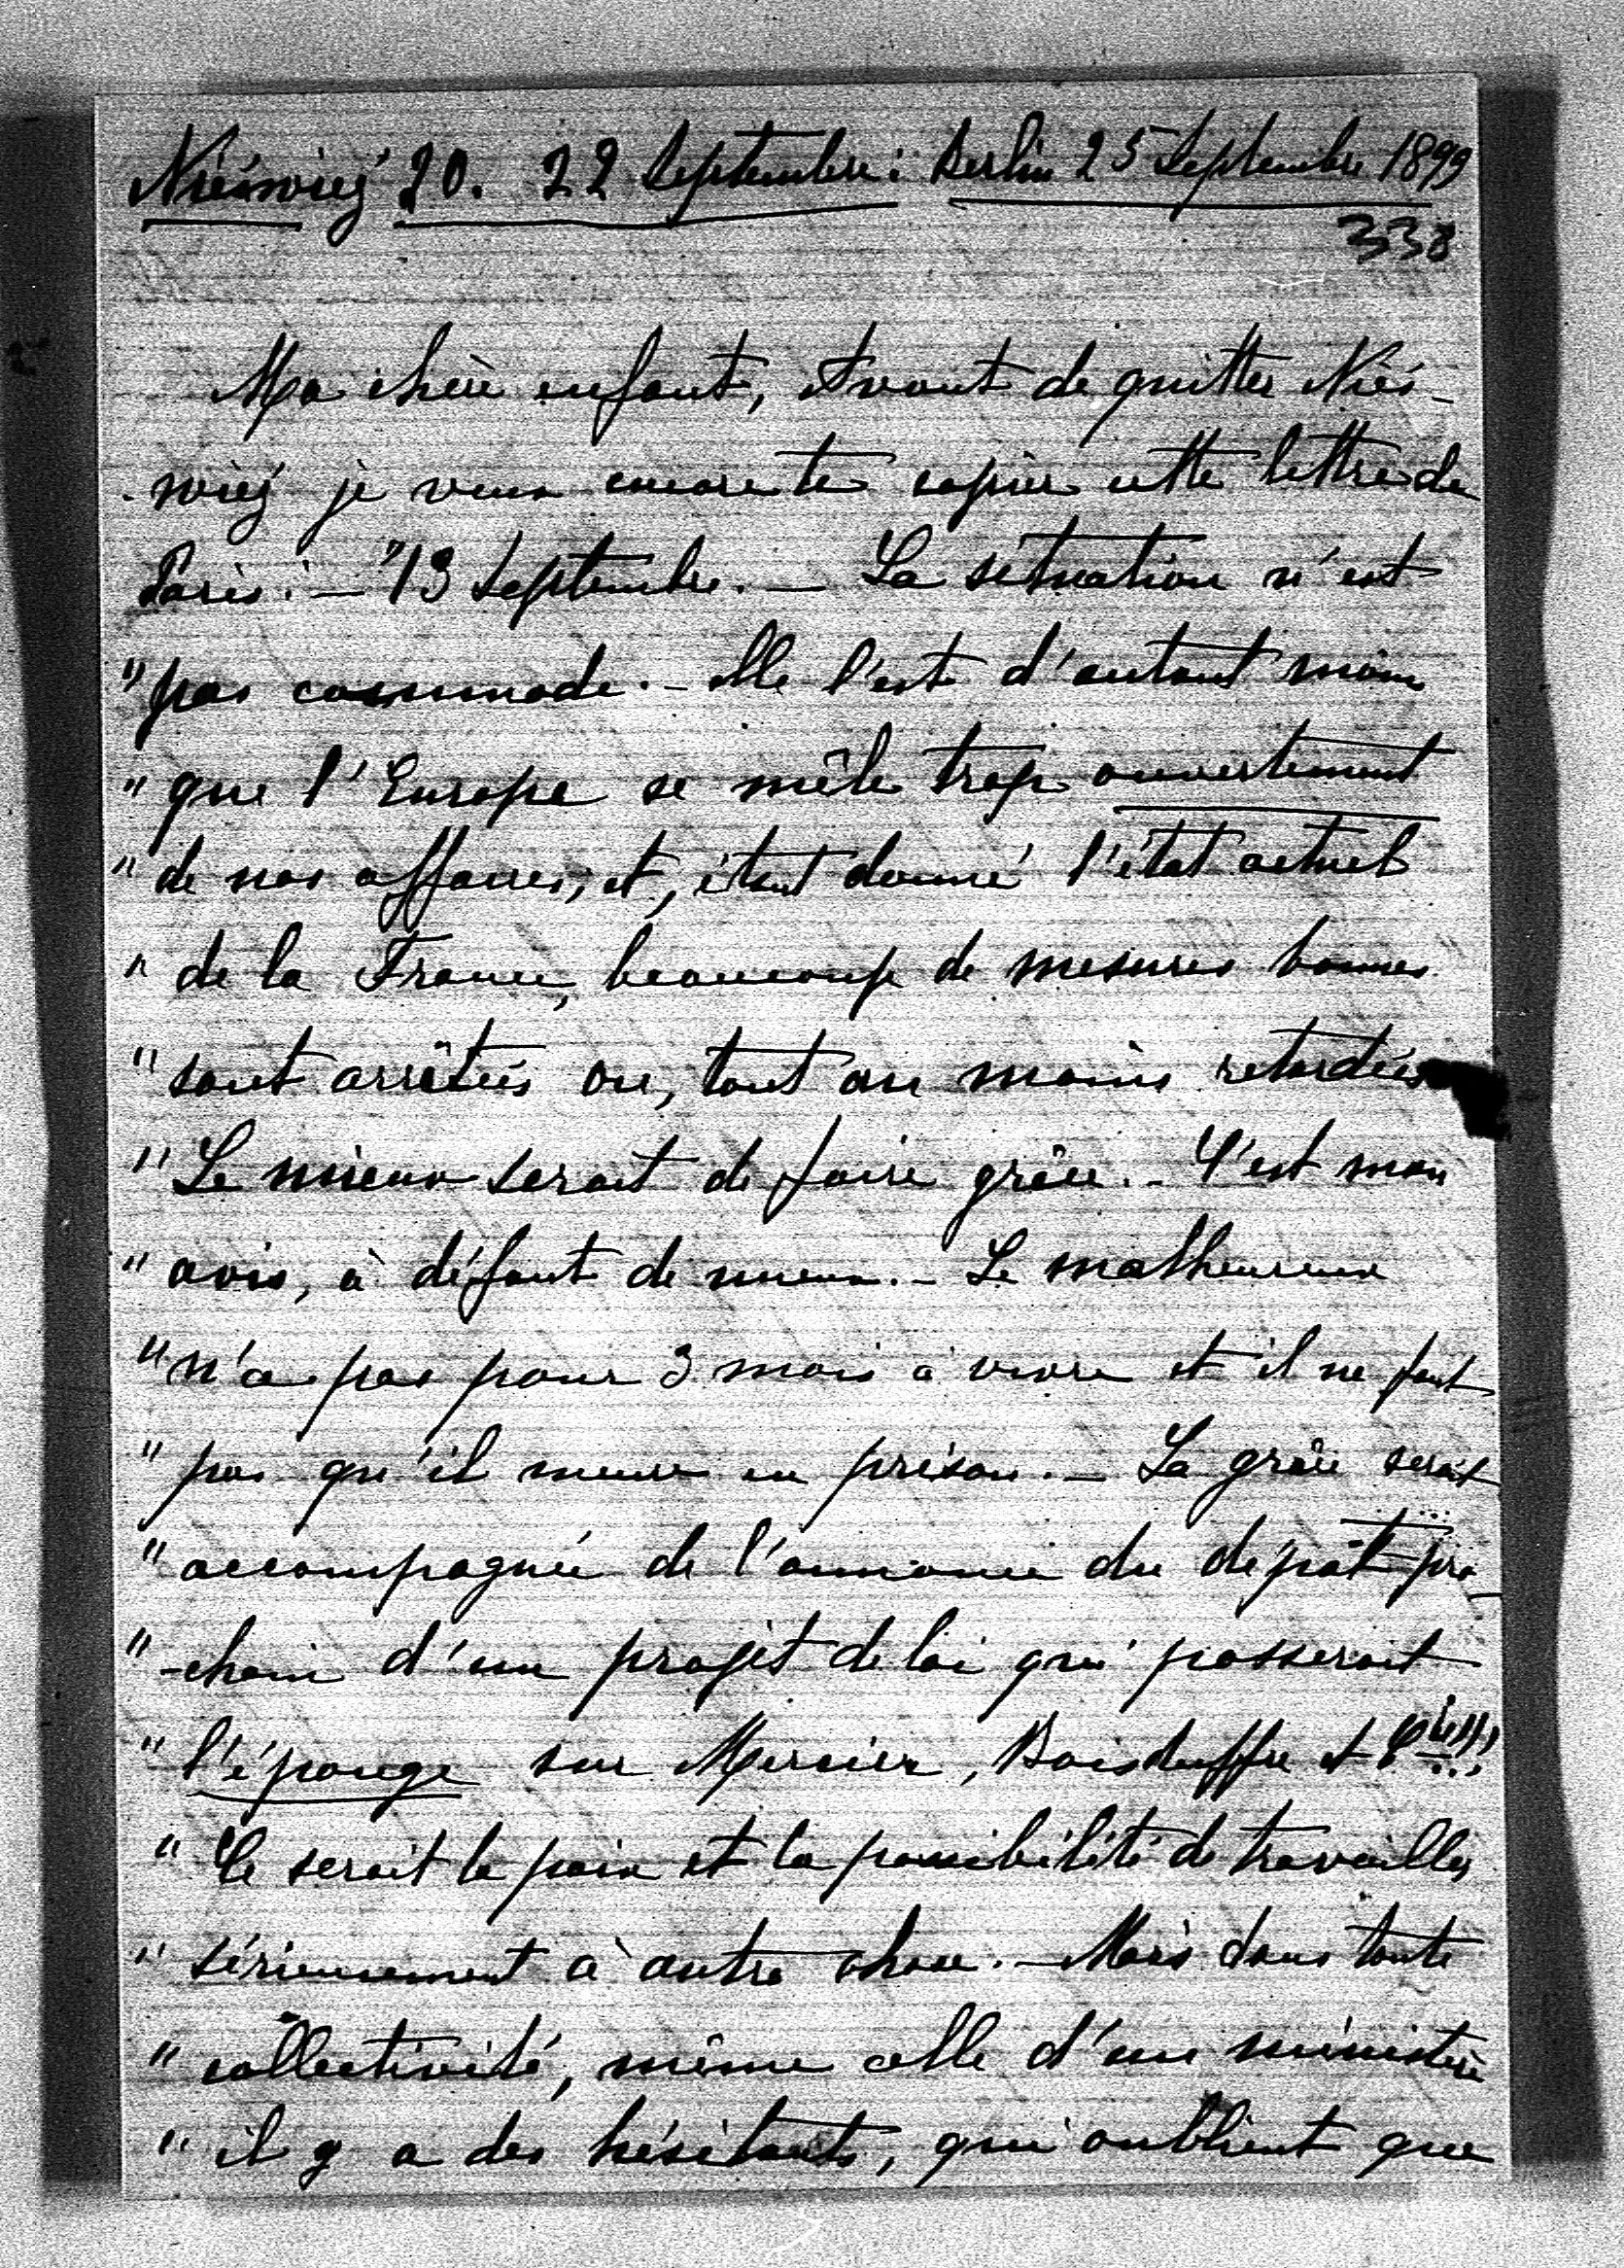 Niéswiéj 20. 22 Septembre: Berlin 25 Septembre 1899
338
Ma chère enfant, Avant de quitter Niés-
-wiéj je veux encore te copier cette lettre de
Paris: — "13 Septembre. — La situation n'est
" pas commode. — Elle l'est d'autant moins
" que l'Europe se mêle trop ouvertement
" de nos affaires, et, étant donné l'état actuel
" de la France, beaucoup de mesures bonnes
" sont arrêtées ou, tout au moins retardées
" Le mieux serait de faire grâce. — C'est mon
" avis, à défaut de mieux. — Le malheureux
" n'a pas pour 3 mois à vivre et il ne faut
" pas qu'il meure en prison. — La grâce serait
" accompagnée de l'annonce du dépôt pro-
" -chain d'un projet de loi qui passerait
" l'éponge sur Mercier, Boisdeffre et Cie!!!
" Ce serait la paix et la possibilité de travailler
" sérieusement à autre chose. — Mais dans toute
" collectivité, même celle d'un ministère
" il y a des hésitants, qui oublient que